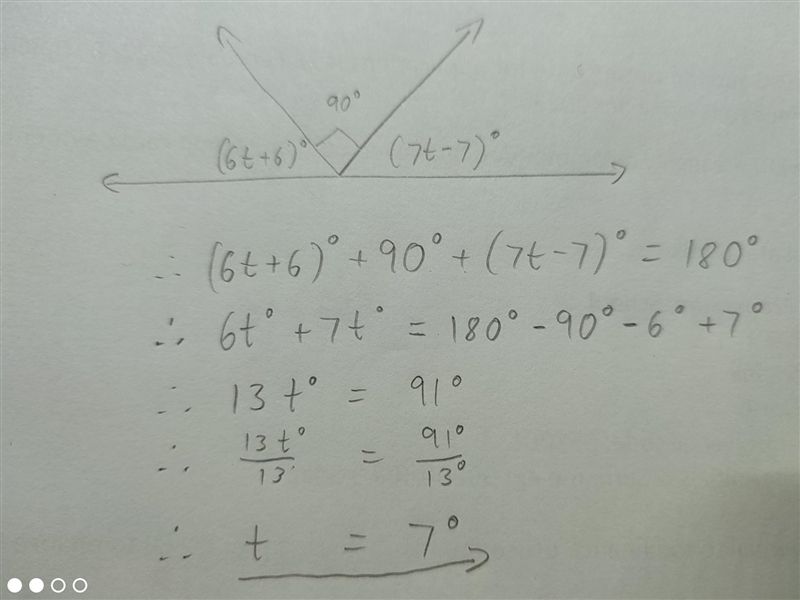 90°
(6t+6)° (7t-7)°
∴ (6t+6)° + 90° + (7t-7)° = 180°
∴ 6t° + 7t° = 180° - 90° - 6° + 7°
∴ 13t° = 91°
∴ 13t°/13 = 91°/13°
∴ t = 7°